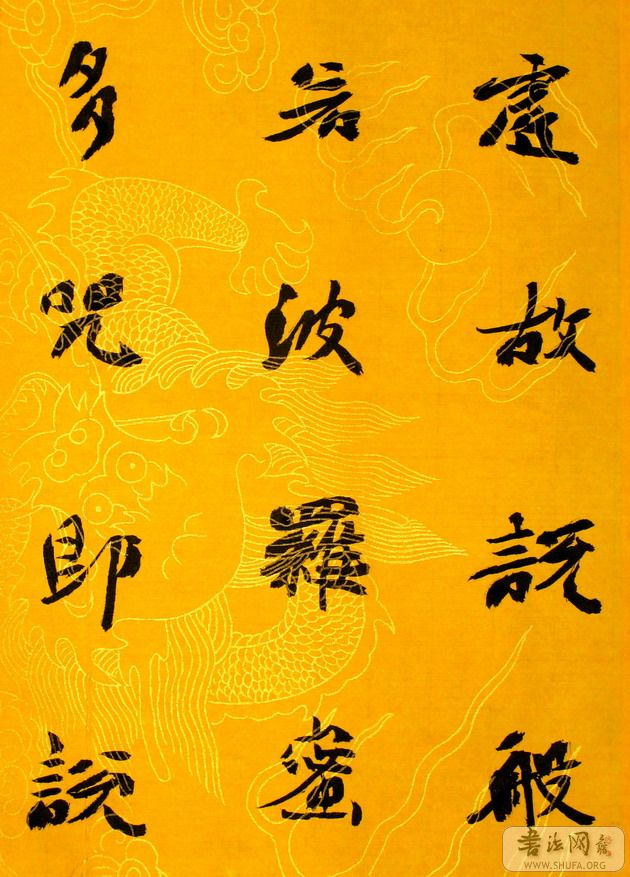 虛故說般
若波羅蜜
多咒即說
書法网
WWW.SHUFA.ORG